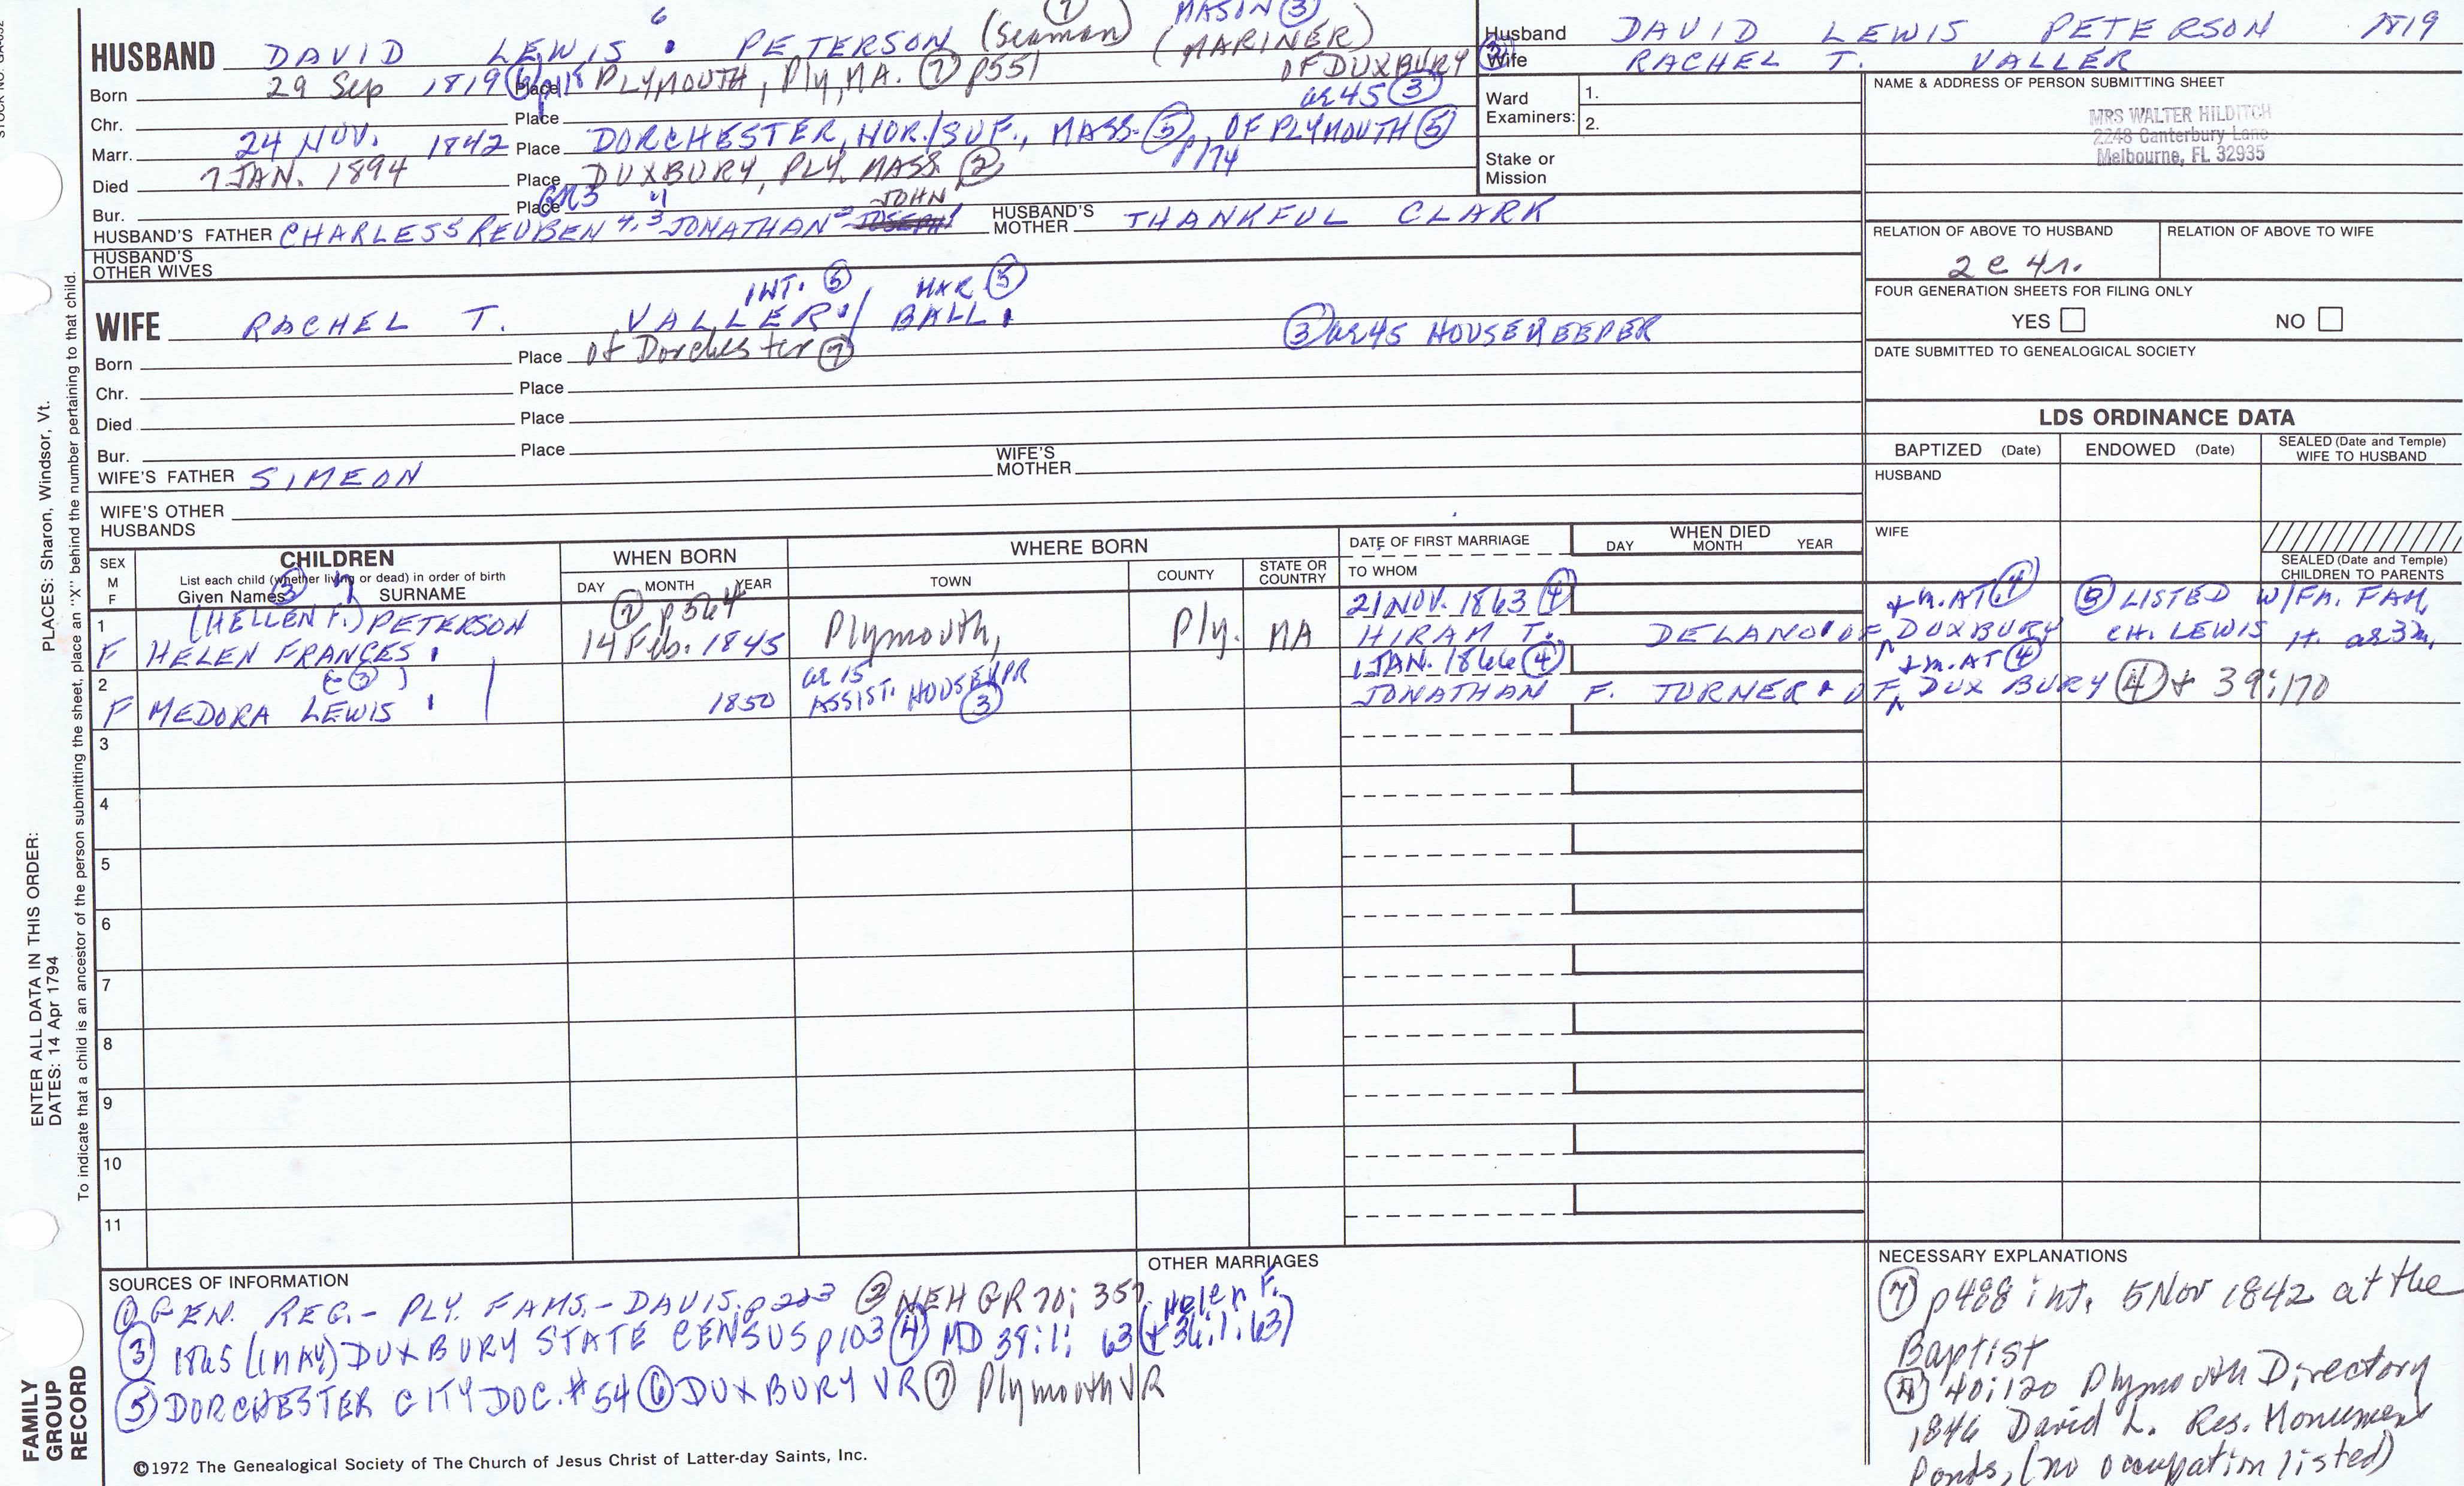 6 (7) MASON (3)
HUSBAND DAVID LEWIS PETERSON (Seaman) (MARINER)
Born 29 Sep 1819 (6) Place PLYMOUTH, Ply, MA. (7) p551 OF DUXBURY (3)
ae 45 (3)
Chr. Place
Marr. 24 NOV. 1842 Place DORCHESTER, NOR./SUF., MASS. (5), OF PLYMOUTH (5)
p174
Died 7 JAN. 1894 Place DUXBURY, PLY. MASS. (2)
Bur. Place
JOHN
HUSBAND'S FATHER CHARLES 5 REUBEN 4, 3 JONATHAN 2 JOSEPH 1 HUSBAND'S MOTHER THANKFUL CLARK
HUSBAND'S OTHER WIVES
Husband DAVID LEWIS PETERSON 1819
Wife RACHEL T. VALLER
Ward Examiners: 1.
2.
Stake or Mission
NAME & ADDRESS OF PERSON SUBMITTING SHEET
MRS WALTER HILDITCH
2248 Canterbury Lane
Melbourne, FL 32935
RELATION OF ABOVE TO HUSBAND RELATION OF ABOVE TO WIFE
2 c 4 r.
FOUR GENERATION SHEETS FOR FILING ONLY
YES NO
DATE SUBMITTED TO GENEALOGICAL SOCIETY
INT. (5) MAR (5)
WIFE RACHEL T. VALLER / BALL
(3) ae 45 HOUSEKEEPER
Born Place of Dorchester (7)
Chr. Place
Died Place
Bur. Place
WIFE'S FATHER SIMEON WIFE'S MOTHER
WIFE'S OTHER HUSBANDS
LDS ORDINANCE DATA
BAPTIZED (Date) ENDOWED (Date) SEALED (Date and Temple) WIFE TO HUSBAND
HUSBAND
WIFE
SEALED (Date and Temple) CHILDREN TO PARENTS
SEX M F CHILDREN WHEN BORN WHERE BORN DATE OF FIRST MARRIAGE WHEN DIED
List each child (whether living or dead) in order of birth
Given Names SURNAME DAY MONTH YEAR TOWN COUNTY STATE OR COUNTRY TO WHOM DAY MONTH YEAR
(3) 7
1 (HELLEN F.) PETERSON (7) p564 21 NOV. 1863 (4) + m. AT (4) (5) LISTED W/FA. FAM,
F HELEN FRANCES 14 Feb. 1845 Plymouth, Ply. MA HIRAM T. DELANO OF DUXBURY CH. LEWIS H. ae 3
2 ae 15 1 JAN. 1866 (4) + m. AT (4)
F MEDORA LEWIS 1850 ASSIST. HOUSEKPR (3) JONATHAN F. TURNER OF DUXBURY (4) + 39:170
3
4
5
6
7
8
9
10
11
SOURCES OF INFORMATION
(1) GEN. REG. - PLY. FAMS. - DAVIS. p 203 (2) NEHGR 70; 357.
(3) 1865 (1 MAY) DUXBURY STATE CENSUS p103 (4) MD 39:1; 63 (+ 36:1:63)
Helen F.
(5) DORCHESTER CITY DOC. #54 (6) DUXBURY VR (7) Plymouth VR
OTHER MARRIAGES
NECESSARY EXPLANATIONS
(7) p488 int. 5 Nov 1842 at the
Baptist
(4) 40:120 Plymouth Directory
1846 David L. Res. Monument
Ponds, (no occupation listed)
©1972 The Genealogical Society of The Church of Jesus Christ of Latter-day Saints, Inc.
PLACES: Sharon, Windsor, Vt.
ENTER ALL DATA IN THIS ORDER:
DATES: 14 Apr 1794
To indicate that a child is an ancestor of the person submitting the sheet, place an "X" behind the number pertaining to that child.
FAMILY
GROUP
RECORD